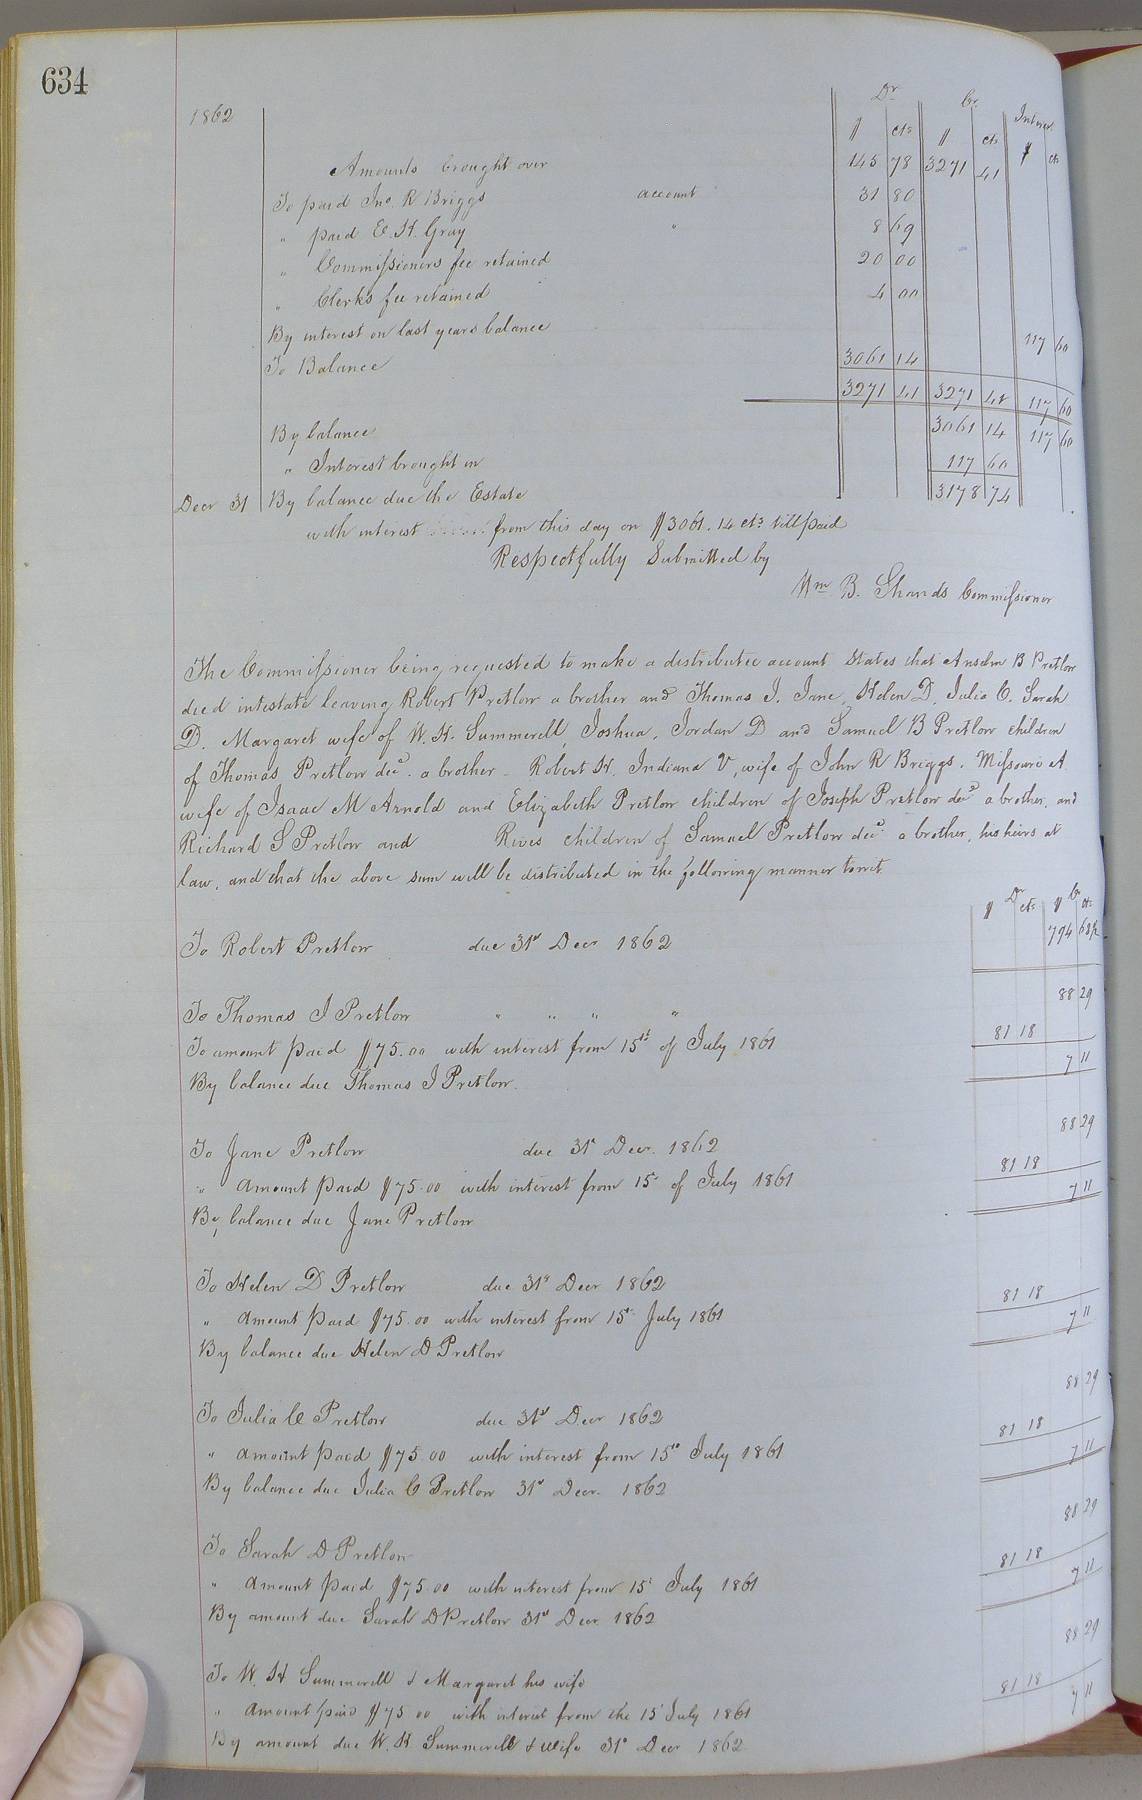 634
Dr. Cr. Interest
1862 $ cts $ cts $ cts
Amounts brought over 145 78 3271 41
To paid Jno. R Briggs account 31 80
" paid E. H. Gray " 8 69
" Commissioners fee retained 20 00
" Clerks fee retained 4 00
By interest on last years balance 117 60
To Balance 3061 14
3271 41 3271 41 117 60
By balance 3061 14 117 60
" Interest brought in 117 60
Decr 31 By balance due the Estate 3178 74
with interest from this day on $3061.14 cts till paid
Respectfully Submitted by
Wm B. Shands Commissioner
The Commissioner being requested to make a distributee account States that Anselm B Pretlow
died intestate leaving Robert Pretlow a brother and Thomas J. Jane, Helen D, Julia C. Sarah
D. Margaret wife of W. H. Summerell, Joshua, Jordan D and Samuel B Pretlow children
of Thomas Pretlow decd. a brother - Robert H. Indiana V, wife of John R Briggs. Missouri A
wife of Isaac M Arnold and Elizabeth Pretlow children of Joseph Pretlow decd a brother, and
Richard S Pretlow and Rives children of Samuel Pretlow decd a brother, his heirs at
law, and that the above sum will be distributed in the following manner towit
Dr Cr
$ cts $ cts
To Robert Pretlow due 31st Decr 1862 794 68½
To Thomas J Pretlow " " " " 88 29
To amount paid $75.00 with interest from 15th of July 1861 81 18
By balance due Thomas J Pretlow 7 11
To Jane Pretlow due 31st Decr. 1862 88 29
" Amount paid $75.00 with interest from 15th of July 1861 81 18
By balance due Jane Pretlow 7 11
To Helen D Pretlow due 31st Decr 1862
" Amount paid $75.00 with interest from 15th July 1861 81 18
By balance due Helen D Pretlow 7 11
To Julia C Pretlow due 31st Decr 1862 88 29
" Amount paid $75.00 with interest from 15th July 1861 81 18
By balance due Julia C Pretlow 31st Decr. 1862 7 11
To Sarah D Pretlow 88 29
" Amount paid $75.00 with interest from 15th July 1861 81 18
By amount due Sarah D Pretlow 31st Decr 1862 7 11
To W. H Summerell & Margaret his wife 88 29
" Amount paid $75 00 with interest from the 15th July 1861 81 18
By amount due W. H Summerell & wife 31st Decr 1862 7 11